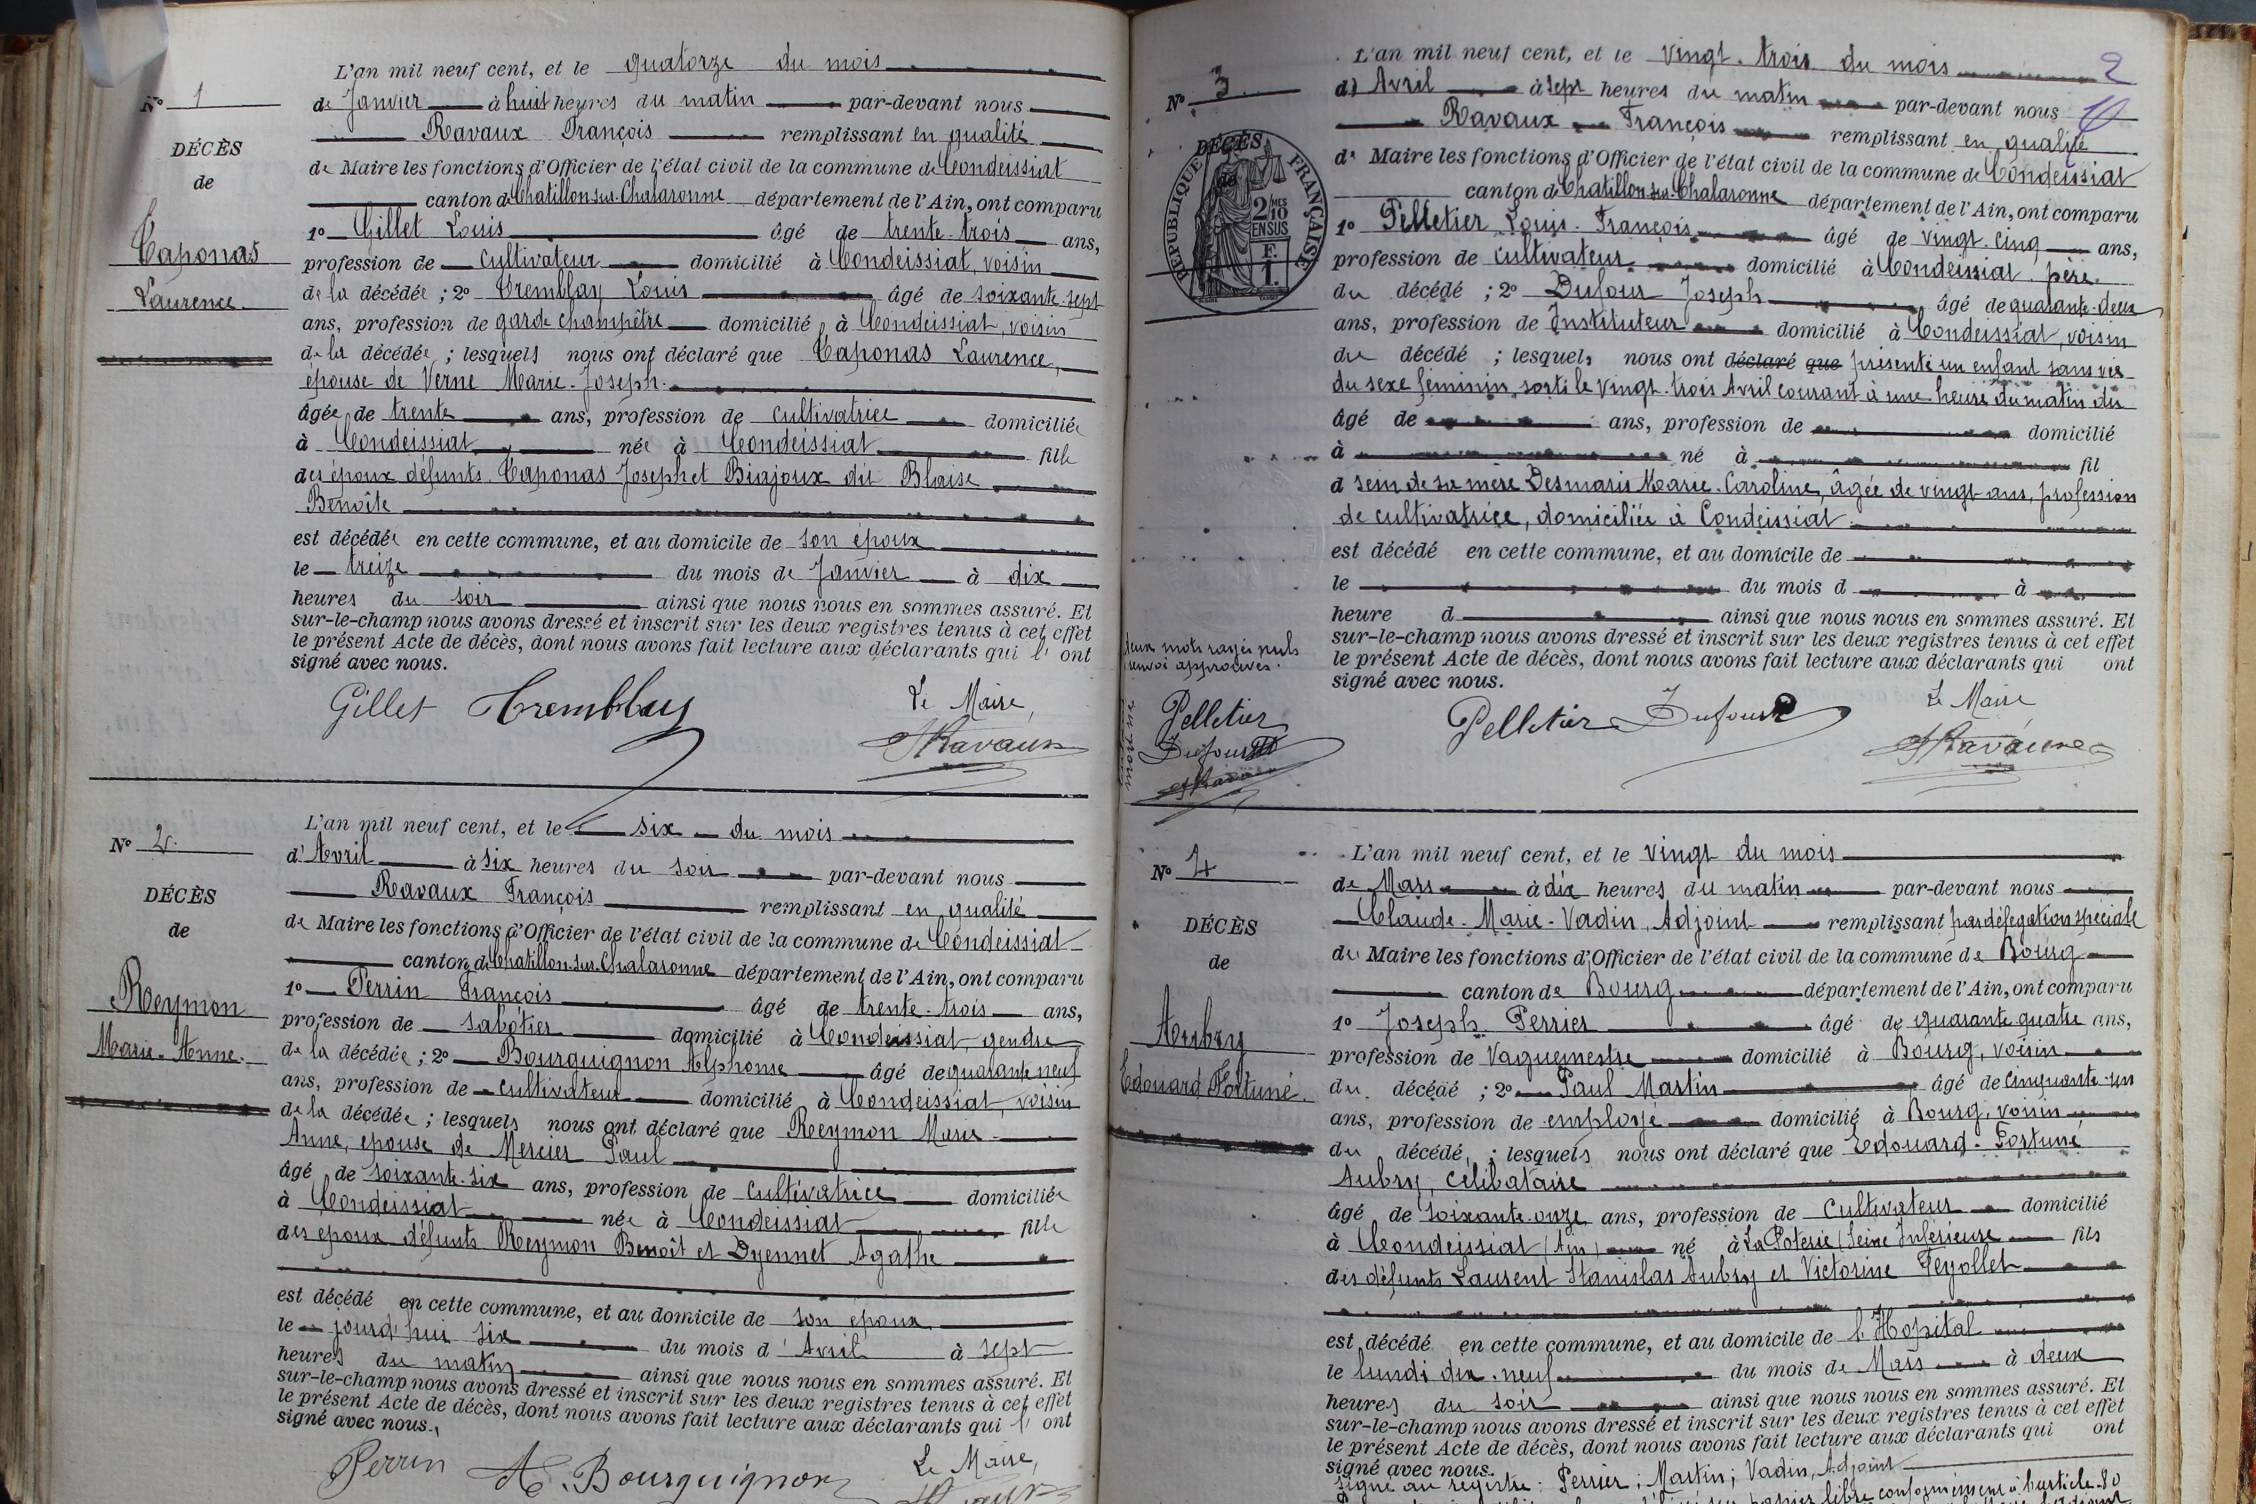 L'an mil neuf cent, et le quatorze du mois
N° 1
de Janvier à huit heures du matin par-devant nous
Ravaux François remplissant en qualité
DÉCÈS
de Maire les fonctions d'Officier de l'état civil de la commune de Condeissiat
de
canton de Chatillon-sur-Chalaronne département de l'Ain, ont comparu
1° Gillet Louis âgé de trente-trois ans,
Caponas
profession de cultivateur domicilié à Condeissiat, voisin
Laurence.
de la décédée ; 2° Tremblay Louis âgé de soixante-sept
ans, profession de garde champêtre domicilié à Condeissiat, voisin
de la décédée ; lesquels nous ont déclaré que Caponas Laurence,
épouse de Verne Marie-Joseph.
âgée de trente ans, profession de cultivatrice domiciliée
à Condeissiat née à Condeissiat fille
des époux défunts Caponas Joseph et Biajoux dit Blaise
Benoîte
est décédée en cette commune, et au domicile de son époux
le treize du mois de Janvier à dix
heures du soir ainsi que nous nous en sommes assuré. Et
sur-le-champ nous avons dressé et inscrit sur les deux registres tenus à cet effet
le présent Acte de décès, dont nous avons fait lecture aux déclarants qui l' ont
signé avec nous.
Gillet Tremblay Le Maire,
Ravaux
L'an mil neuf cent, et le six du mois
N° 2.
d'Avril à six heures du soir par-devant nous
Ravaux François remplissant en qualité
DÉCÈS
de Maire les fonctions d'Officier de l'état civil de la commune de Condeissiat
de
canton de Chatillon-sur-Chalaronne département de l'Ain, ont comparu
1° Perrin François âgé de trente-trois ans,
Reymon
profession de sabotier domicilié à Condeissiat, gendre
Marie-Anne.
de la décédée ; 2° Bourguignon Alphonse âgé de quarante neuf
ans, profession de cultivateur domicilié à Condeissiat, voisin
de la décédée ; lesquels nous ont déclaré que Reymon Marie
Anne, épouse de Mercier Paul
âgé de soixante-six ans, profession de cultivatrice domiciliée
à Condeissiat née à Condeissiat fille
des époux défunts Reymon Benoît et Dyennet Agathe
est décédé en cette commune, et au domicile de son époux
le jourd'hui six du mois d'Avril à sept
heures du matin ainsi que nous nous en sommes assuré. Et
sur-le-champ nous avons dressé et inscrit sur les deux registres tenus à cet effet
le présent Acte de décès, dont nous avons fait lecture aux déclarants qui l' ont
signé avec nous.
Perrin A. Bourguignon Le Maire,
L'an mil neuf cent, et le vingt-trois du mois 2
N° 3
d'Avril à sept heures du matin par-devant nous
Ravaux François remplissant en qualité
DÉCÈS
de
RÉPUBLIQUE FRANÇAISE
2/10 MES EN SUS
F. 1.
de Maire les fonctions d'Officier de l'état civil de la commune de Condeissiat
canton de Chatillon-sur-Chalaronne département de l'Ain, ont comparu
1° Pelletier Louis-François âgé de vingt-cinq ans,
profession de cultivateur domicilié à Condeissiat, père
du décédé ; 2° Dufour Joseph âgé de quarante-deux
ans, profession de Instituteur domicilié à Condeissiat, voisin
du décédé ; lesquels nous ont déclaré que présenté un enfant sans vie
du sexe féminin, sorti le vingt-trois Avril courant à une heure du matin du
âgé de ans, profession de domicilié
à né à fil
d sein de sa mère Desmaris Marie-Caroline, âgée de vingt ans, profession
de cultivatrice, domiciliée à Condeissiat.
est décédé en cette commune, et au domicile de
le du mois d à
heure d ainsi que nous nous en sommes assuré. Et
sur-le-champ nous avons dressé et inscrit sur les deux registres tenus à cet effet
le présent Acte de décès, dont nous avons fait lecture aux déclarants qui ont
signé avec nous.
deux mots rayés nuls
renvoi approuvés.
Pelletier
Dufour
Ravaux
Pelletier Dufour Le Maire
Ravaux
L'an mil neuf cent, et le vingt du mois
N° 4
de Mars à dix heures du matin par-devant nous
Claude-Marie-Vadin, Adjoint remplissant par délégation spéciale
DÉCÈS
de Maire les fonctions d'Officier de l'état civil de la commune de Bourg
de
canton de Bourg département de l'Ain, ont comparu
1° Joseph Perrier âgé de quarante quatre ans,
Aubry
profession de Vaguemestre domicilié à Bourg, voisin
Edouard Fortuné.
du décédé ; 2° Paul Martin âgé de cinquante-un
ans, profession de employé domicilié à Bourg, voisin
du décédé ; lesquels nous ont déclaré que Edouard-Fortuné
Aubry, célibataire
âgé de soixante-onze ans, profession de Cultivateur domicilié
à Condeissiat (Ain) né à La Poterie (Seine Inférieure fils
des défunts Laurent Stanislas Aubry et Victorine Feyollet
est décédé en cette commune, et au domicile de l'Hopital
le lundi dix-neuf du mois de Mars à deux
heures du soir ainsi que nous nous en sommes assuré. Et
sur-le-champ nous avons dressé et inscrit sur les deux registres tenus à cet effet
le présent Acte de décès, dont nous avons fait lecture aux déclarants qui ont
signé avec nous.
Signé au registre : Perrier ; Martin ; Vadin, Adjoint
papier libre conformément à l'article 80